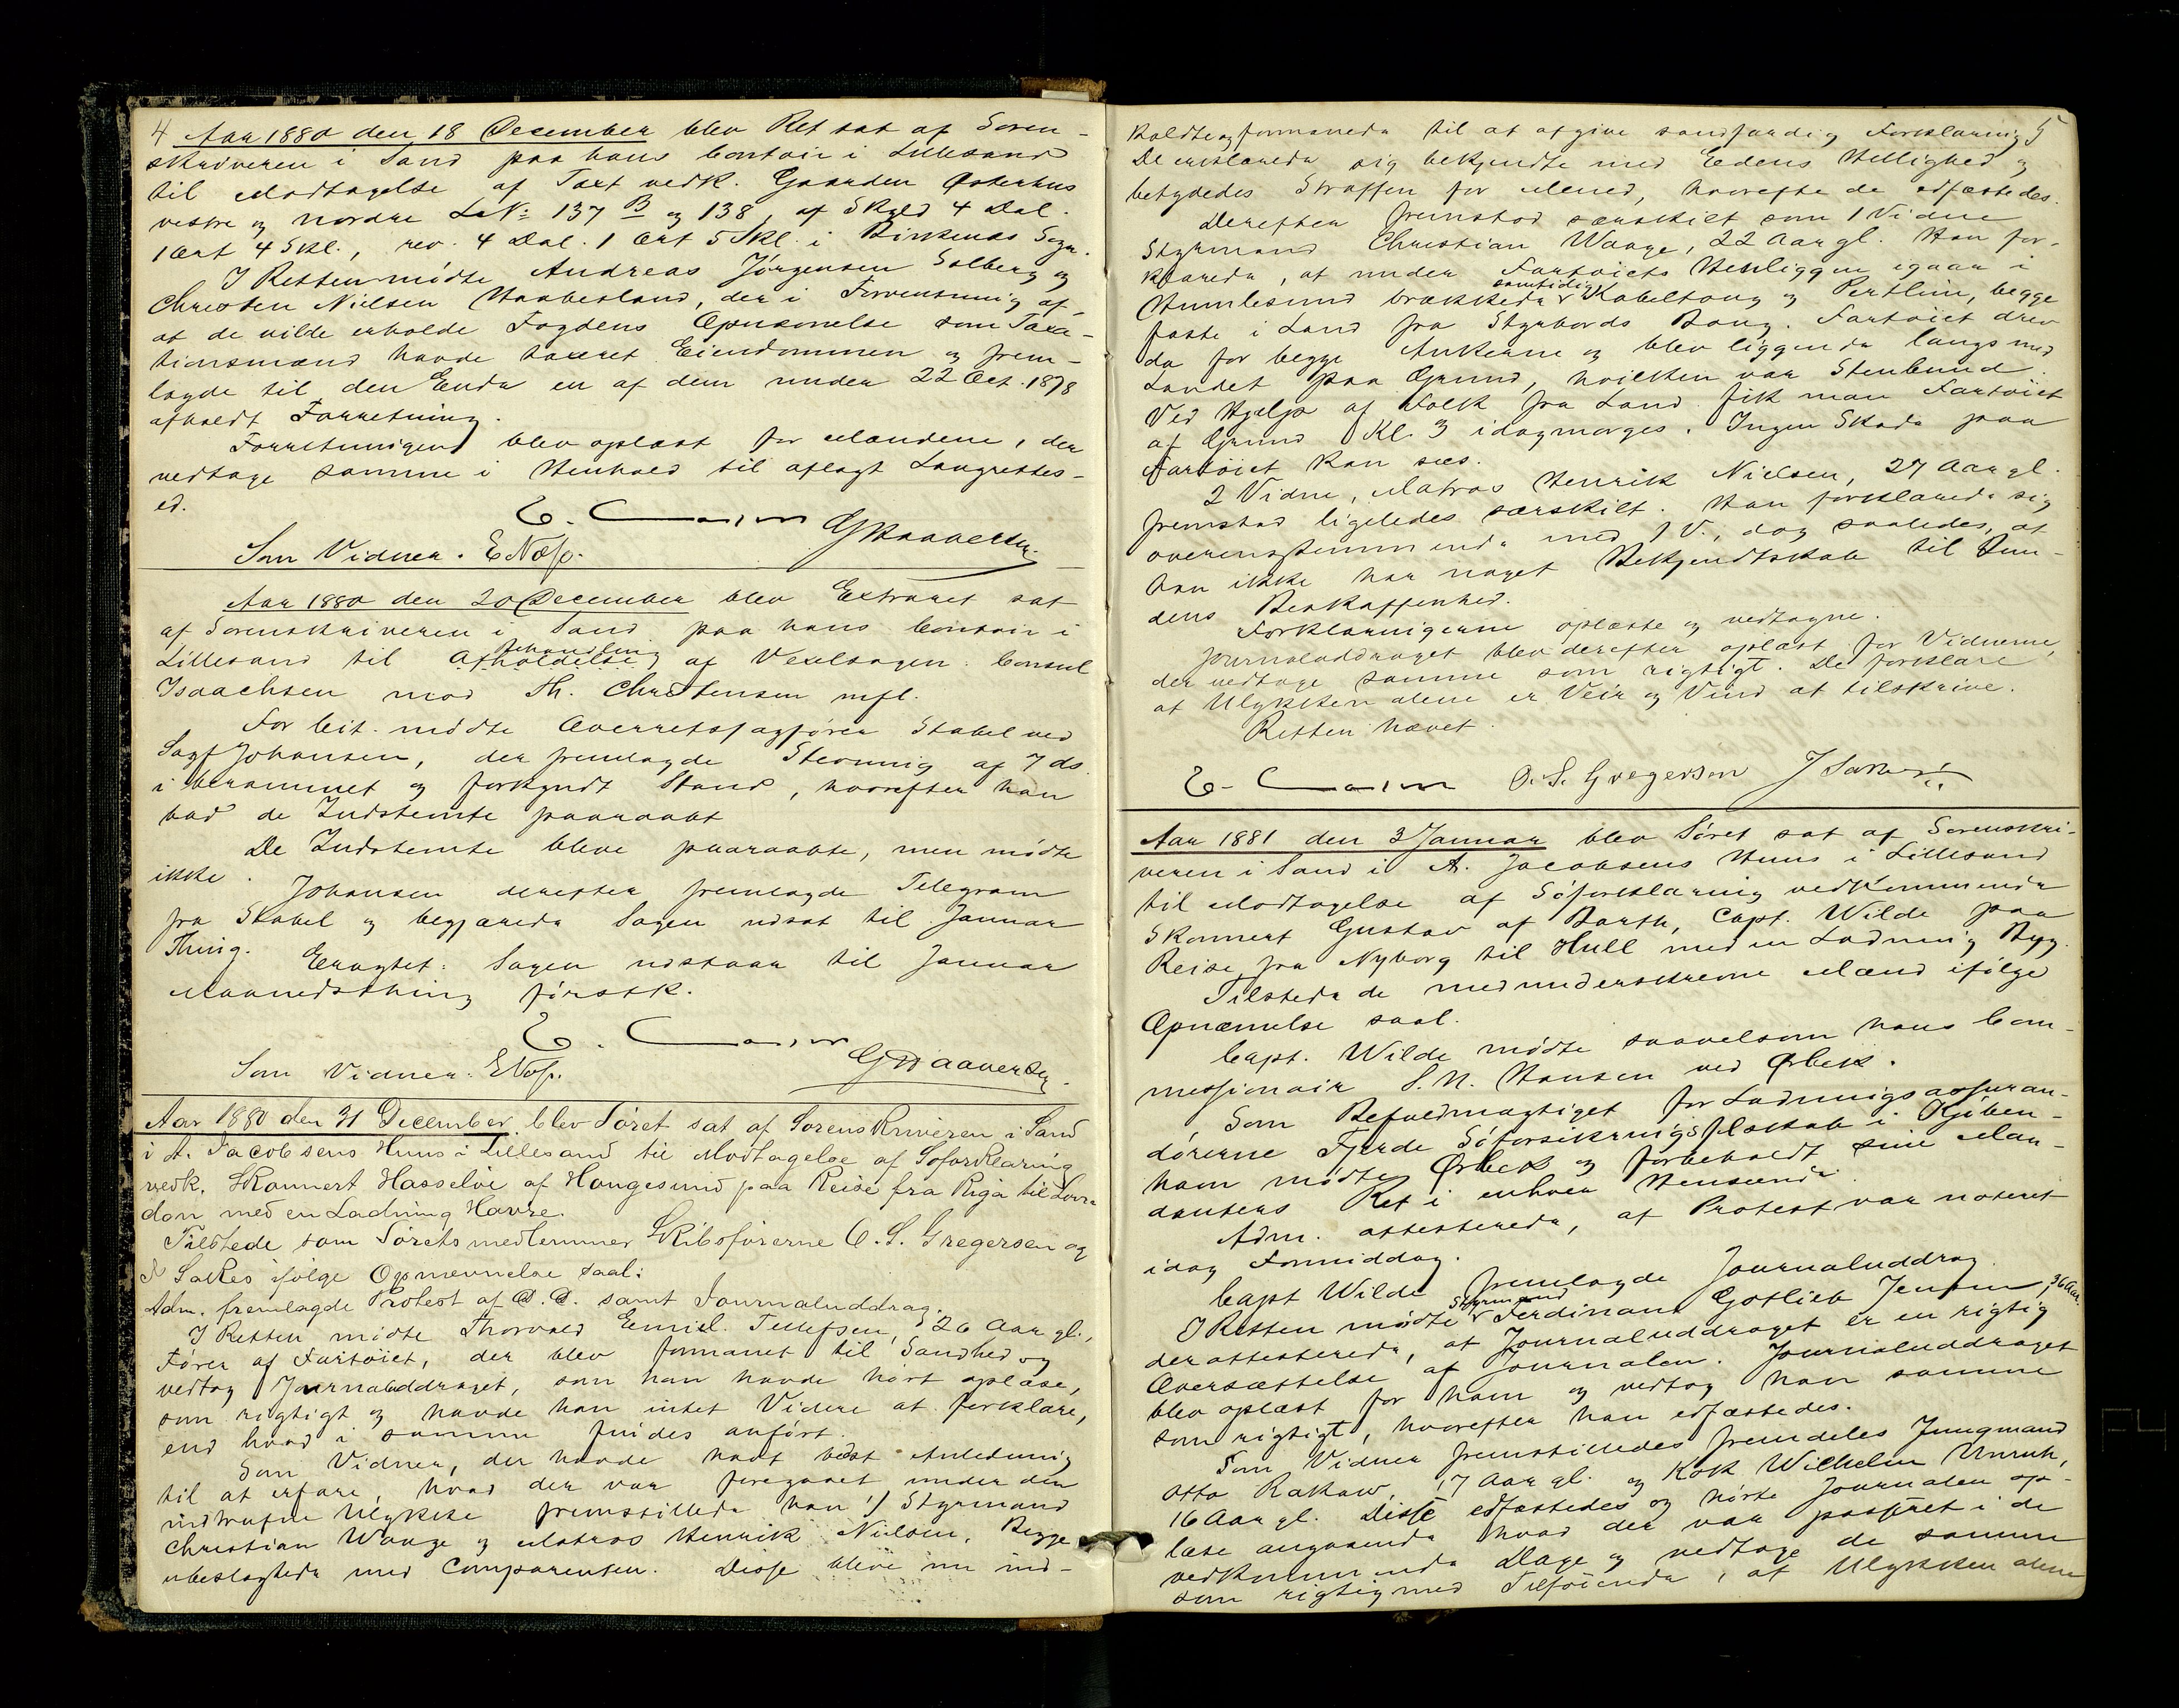 4 Aar 1880 den 18 December blev Ret sat af Soren-
skriveren i Sand paa hans Contoir i Lillesand
til Modtagelse af Taxt vedk. Gaarden Østerhus
vestre og nordre LNo 137 B og 138, af Skyld 4 Dal.
1 Ort 4 Skl., rev. 4 Dal. 1 Ort 5 Skl. i Birkenæs Sogn.
I Retten mødte Andreas Jørgensen Solberg og
Christen Nielsen Haabesland, der i Forventning af
at de vilde erholde Fogdens Opnævnelse som Taxa-
tionsmænd havde taxeret Eiendommen og frem-
lagde til den Ende en af dem under 22 Oct. 1878
afholdt Forretning.
Forretningen blev oplæst for Mændene, der
vedtoge samme i Henhold til aflagt Laugrettes-
ed.
Som Vidner.
Aar 1880 den 20 December blev Extraret sat
af Sorenskriveren i Sand paa hans Contoir i
Lillesand til Afholdelse behandling af Vexelsagen: Consul
Isaachsen mod Th. Christensen mfl.
For Cit. mødte Overretssagfører Stabel ved
Sagf Johansen, der fremlagde Stevning af 7 ds.
i berammet og forkyndt Stand, hvorefter han
bad de Indstemte paaraabt
De Indstemte bleve paaraabte, men mødte
ikke.
Johansen derefter fremlagde Telegram
fra Stabel og begjærede Sagen udsat til Januar
Thing.
Eragtet: Sagen udstaar til Januar
Maanedsthing førstk.
Som Vidner.
Aar 1880 den 31 December blev Søret sat af Sorenskriveren i Sand
i A. Jacobsens Huus i Lillesand til Modtagelse af Søforklaring
vedk. Skonnert Hasseløe af Haugesund paa Reise fra Riga til Lon-
don med en Ladning Havre.
Tilstede som Sørets medlemmer Skibsførerne O. S. Gregersen og
J Salves ifølge Opnævnelse saal:
Adm. fremlagde Protest af D. D. samt Journaluddrag.
I Retten mødte Thorvald Emil Tellefsen, 26 Aar gl.,
Fører af Fartøiet, der blev formanet til Sandhed og
vedtog Journaluddraget, som han havde hørt oplæse,
som rigtigt og havde han intet Videre at forklare,
end hvad i samme findes anført.
Som Vidner, der havde havt bedst Anledning
til at erfare, hvad der var foregaaet under den
indtrufne Ulykke fremstillede han 1) Styrmand
Christian Waage og Matros Henrik Nielsen, Begge
ubeslægtede med Comparenten. Disse bleve nu ind-
kaldte og formanede til at afgive sandfærdig Forklaring 5
De erklærede sig bekjendte med Edens Hellighed og
betydedes Straffen for Mened, hvorefter de edfæstedes.
Derefter fremstod særskilt som 1 Vidne
Styrmand Christian Waage, 22 Aar gl. Han for-
klarede, at under Fartøiets Henliggen igaar i
Humlesund brækkede samtidig Kabeltoug og Pertlin, begge
faste i Land fra Styrbords Boug. Fartøiet drev
da for begge Ankerne og blev liggende langs med
Landet paa Grund, hvilken var Stenbund.
Ved Hjælp af Folk fra Land fik man Fartøiet
af Grund Kl. 3 idagmorges. Ingen Skade paa
Fartøiet kan sees.
2 Vidne, Matros Henrik Nielsen, 27 Aar gl.
fremstod ligeledes særskilt. Han forklarede sig
overensstemmende med 1 V., dog saaledes, at
han ikke har noget Bekjendtskab til Bun-
dens Beskaffenhed.
Forklaringerne oplæste og vedtagne.
Journaluddraget blev derefter oplæst for Vidnerne,
der vedtoge samme som rigtigt. De forklare
at Ulykken alene er Veir og Vind at tilskrive.
Retten hævet
O. S. Gregersen
Aar 1881 den 3 Januar blev Søret sat af Sorenskri-
veren i Sand i A. Jacobsens Huus i Lillesand
til Modtagelse af Søforklaring vedkommende
Skonnert Gustav af Barth, Capt. Wilde paa
Reise fra Nyborg til Hull med en Ladning Byg.
Tilstede de medunderskrevne Mænd ifølge
Opnævnelse saal.
Capt. Wilde mødte saavelsom hans Com-
missionair S. N. Hansen ved Ørbek.
Som Befuldmægtiget for Ladningsassuran-
dørerne Fjerde Søforsikringsselskab i Kjøben-
havn mødte Ørbek og forbeholdt sine Man-
danters Ret i enhver Henseende.
Adm. attesterede, at Protest var noteret
idag Formiddag.
Capt Wilde fremlagde Journaluddrag
I Retten mødte Styrmand Ferdinand Gotlieb Jensen, 36 Aar,
der attesterede, at Journaluddraget er en rigtig
Oversættelse af Journalen. Journaluddraget
blev oplæst for ham og vedtog han samme
som rigtigt, hvorefter han edfæstedes.
Som Vidner fremstilledes fremdeles Jungmand
Otto Rakow, 17 Aar gl. og Kok Wilhelm Unruh,
16 Aar gl. Disse edfæstedes og hørte Journalen op-
læse angaaende hvad der var passeret i de
vedkommende Dage og vedtoge de samme
som rigtig med Tilføiende, at Ulykken alene